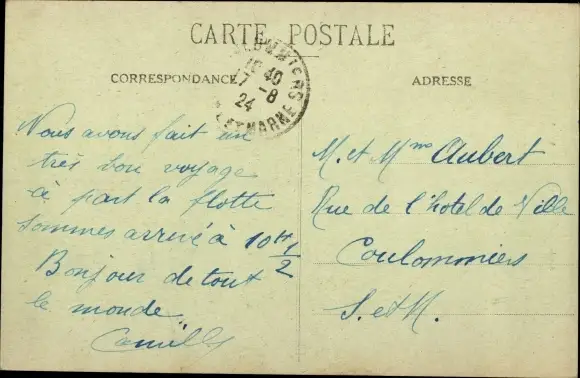 CARTE POSTALE
CORRESPONDANCE
COULOMMIERS
16 40
17 -8
24
SEINE ET MARNE
Nous avons fait un
très bon voyage
à part la flotte
sommes arrivé à 10H 1/2
Bonjour de tout
le monde
Camille
ADRESSE
M. et Mme Aubert
Rue de l'hotel de Ville
Coulommiers
S. et M.